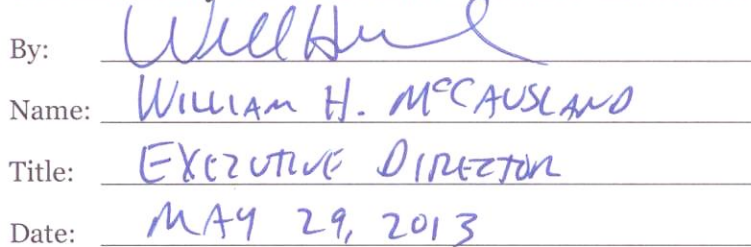 By:
Name: WILLIAM H. McCAUSLAND
Title: EXECUTIVE DIRECTOR
Date: MAY 29, 2013